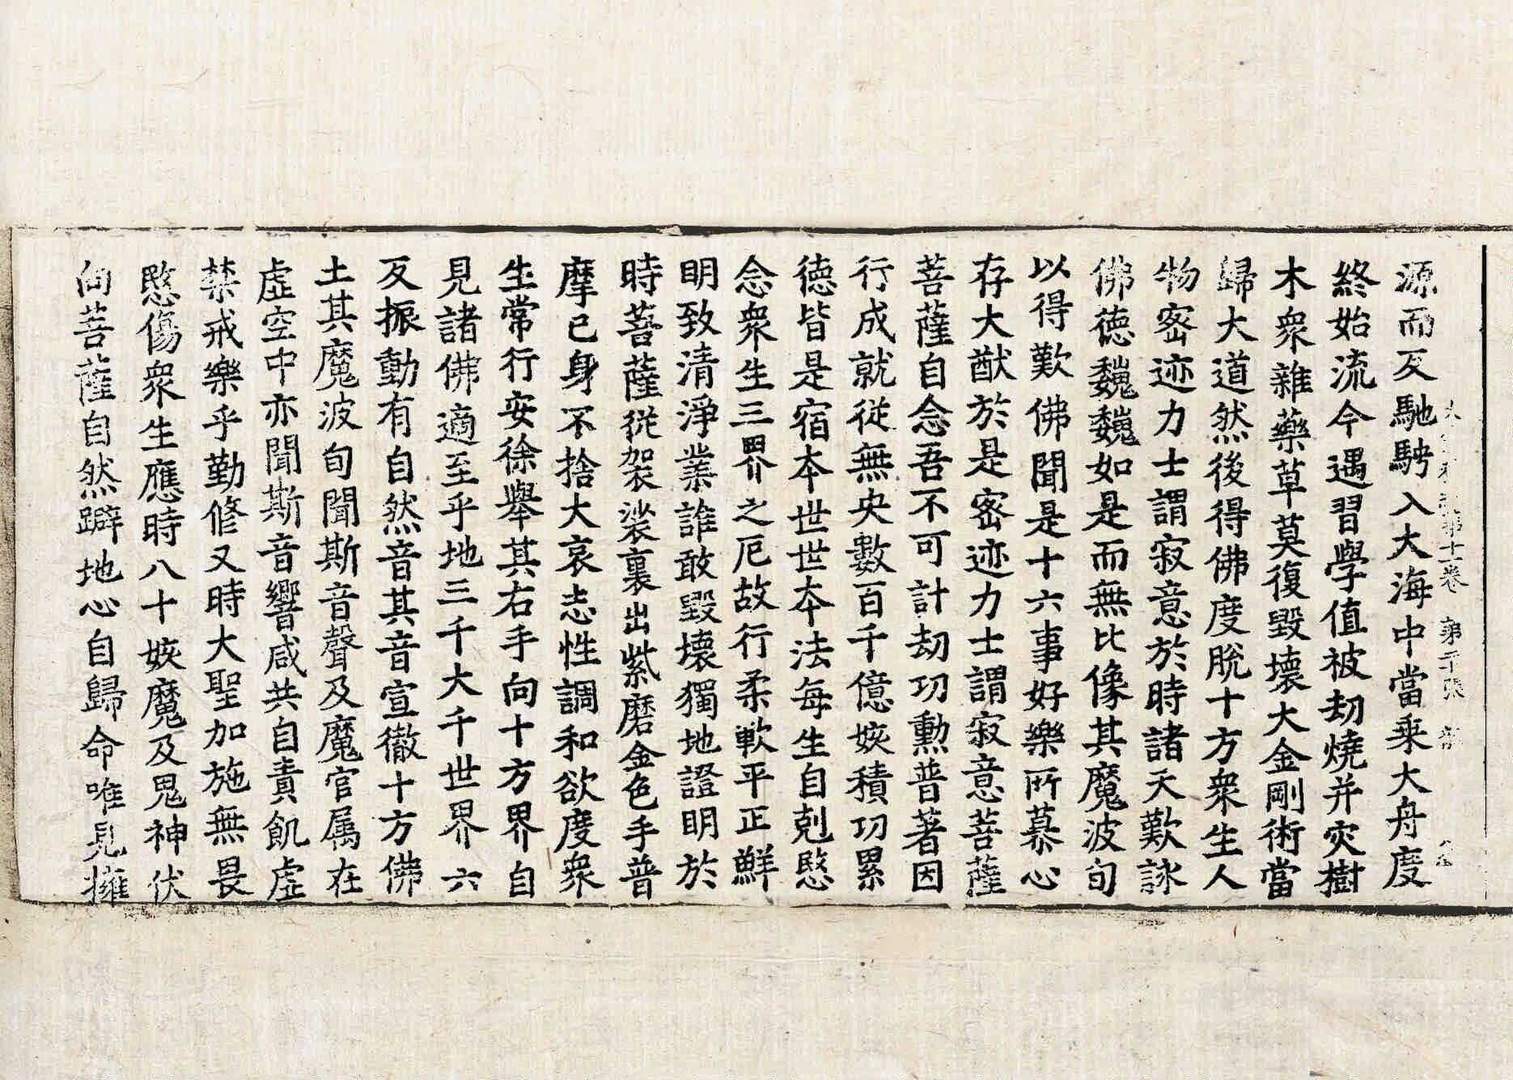 源而反馳騁入大海中當乗大舟度
終始流今遇習學值被劫燒并灾樹
木衆雜藥草莫復毀壞大金剛術當
歸大道然後得佛度脫十方衆生人
物密迹力士謂寂意於時諸天歎詠
佛德巍巍如是而無比像其魔波旬
以得歎佛聞是十六事好樂所慕心
存大猷於是密迹力士謂寂意菩薩
菩薩自念吾不可計劫功勲普著因
行成就從無央數百千億姟積功累
德皆是宿本世世本法每生自剋愍
念衆生三界之厄故行柔軟平正鮮
明致清淨業誰敢毀壞獨地證明於
時菩薩從袈裟裏出紫磨金色手普
摩已身不捨大哀志性調和欲度衆
生常行安徐舉其右手向十方界自
見諸佛適至乎地三千大千世界六
反振動有自然音其音宣徹十方佛
土其魔波旬聞斯音聲及魔官属在
虛空中亦聞斯音響咸共自責飢虛
禁戒樂乎勤修又時大聖加施無畏
愍傷衆生應時八十姟魔及鬼神伏
向菩薩自然躃地心自歸命唯見擁
第十一卷 第二十張